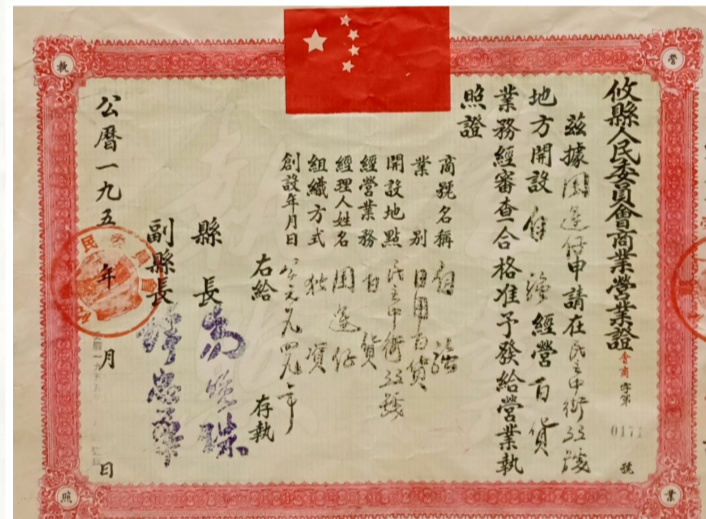 攸縣人民委員會商業營業證
會商 字第 017 號
茲據周蓮仔申請在民主中街33號
地方開設自強經營百貨
業務經審查合格准予發給營業執
照證
商號名稱 自強
業別 日用百貨
開設地點 民主中街33號
經營業務 百貨
經理人姓名 周蓮仔
組織方式 獨資
創設年月日 公元一九四九年
右給 存執
縣長
副縣長
公曆一九五 年 月 日
營
業
執
照